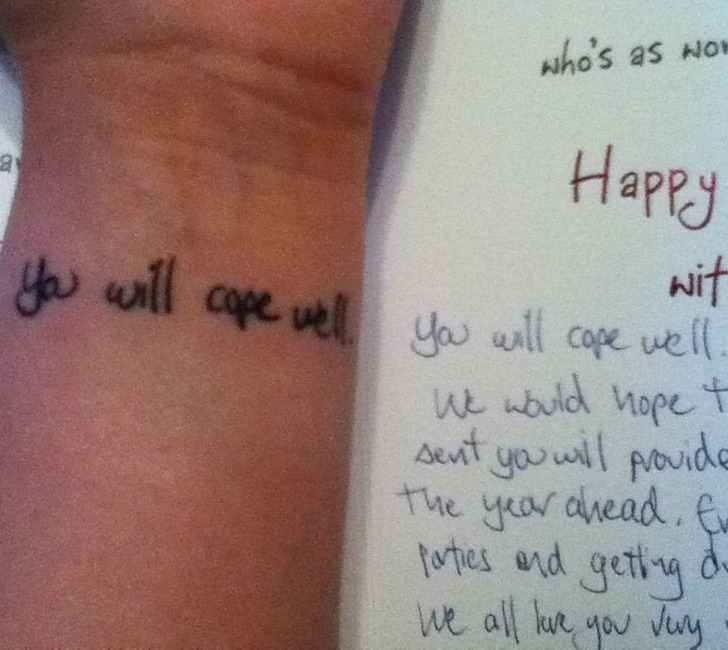 You will cope well.
who's as
Happy
You will cope well.
We would hope
sent you will
the year ahead.
parties and getting
We all love you very